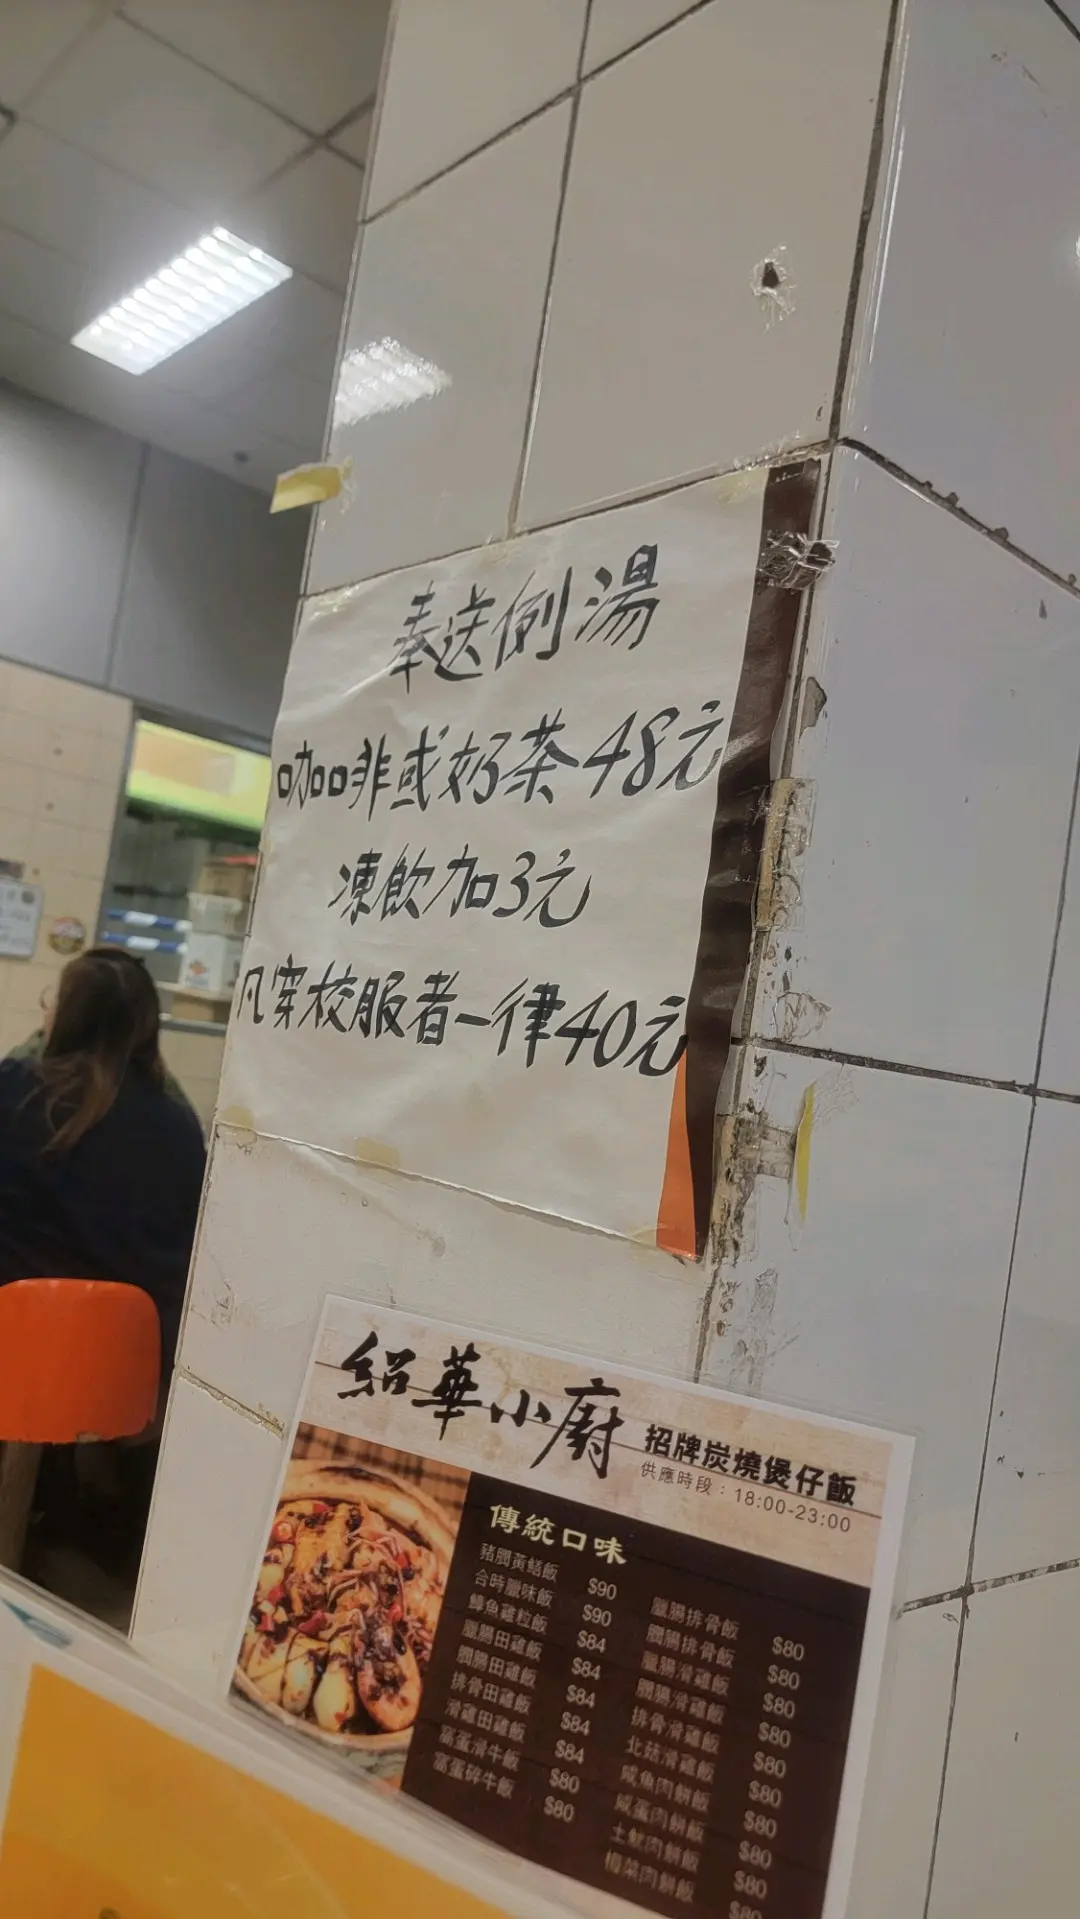 奉送例湯
咖啡或奶茶48元
凍飲加3元
凡穿校服者一律40元
紹華小廚
招牌炭燒煲仔飯
供應時段：18:00-23:00
傳統口味
豬膶黃鱔飯 $90
合時臘味飯 $90
鱆魚雞粒飯 $84
臘腸田雞飯 $84
膶腸田雞飯 $84
排骨田雞飯 $84
滑雞田雞飯 $84
窩蛋滑牛飯 $80
窩蛋碎牛飯 $80
臘腸排骨飯 $80
膶腸排骨飯 $80
臘腸滑雞飯 $80
膶腸滑雞飯 $80
排骨滑雞飯 $80
北菇滑雞飯 $80
咸魚肉餅飯 $80
咸蛋肉餅飯 $80
土魷肉餅飯 $80
梅菜肉餅飯 $80